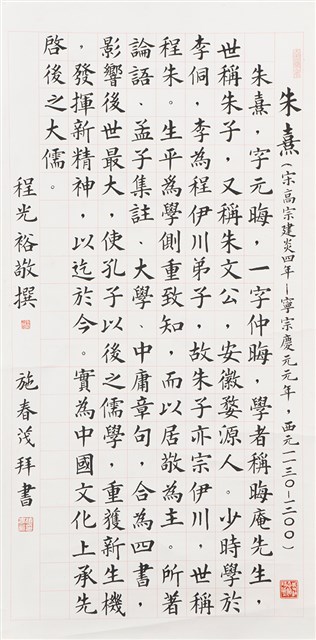 朱熹（宋高宗建炎四年－寧宗慶元元年，西元一一三０－一二００）
朱熹，字元晦，一字仲晦，學者稱晦庵先生，
世稱朱子，又稱朱文公，安徽婺源人。少時學於
李侗，李為程伊川弟子，故朱子亦宗伊川，世稱
程朱。生平為學側重致知，而以居敬為主。所著
論語、孟子集註、大學、中庸章句，合為四書，
影響後世最大，使孔子以後之儒學，重獲新生機
，發揮新精神，以迄於今。實為中國文化上承先
啓後之大儒。
程光裕敬撰
施春茂拜書